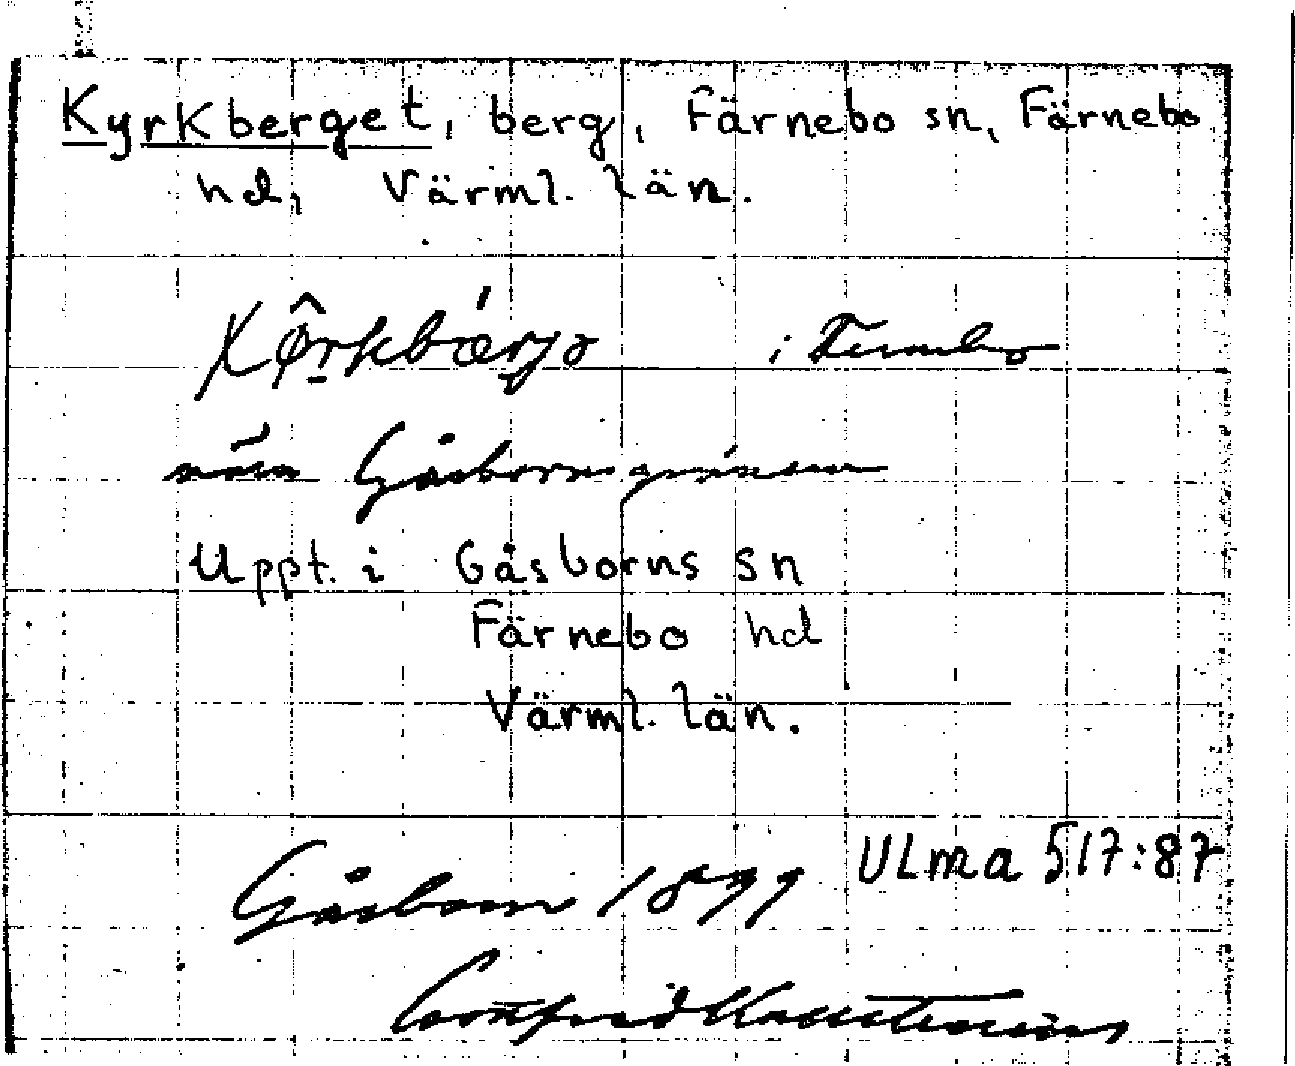 Kyrkberget, berg, Färnebo sn, Färnebo
hd, Värml. län.
i Fernebo
nära Gåsbornsgränsen
Uppt. i Gåsborns sn
Färnebo hd
Värml. län.
Gåsborn 1899 ULMA 517:87